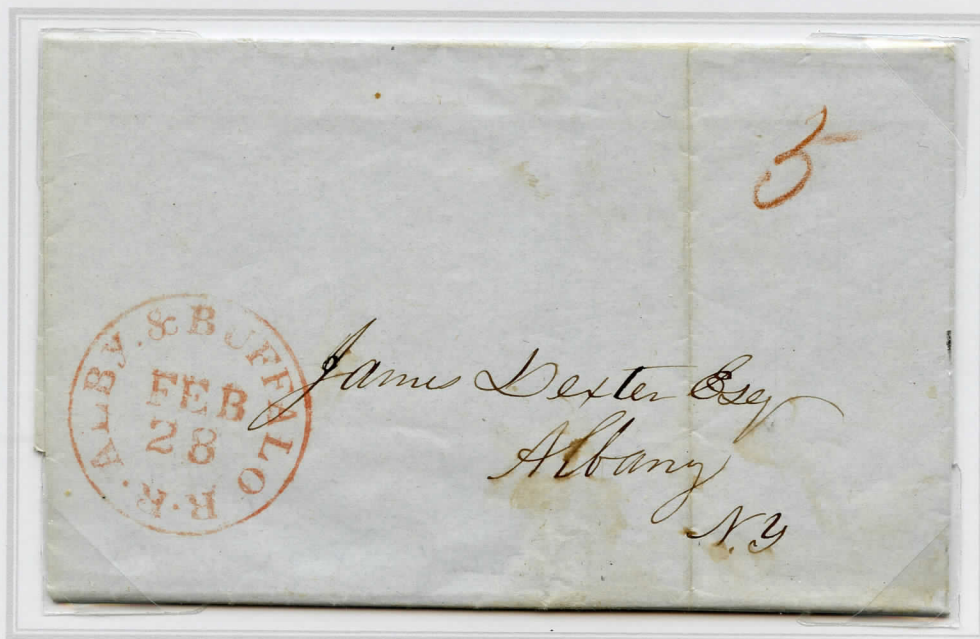 5
ALBY. & BUFFALO R.R.
FEB
28
James Dexter Esq
Albany
N.Y